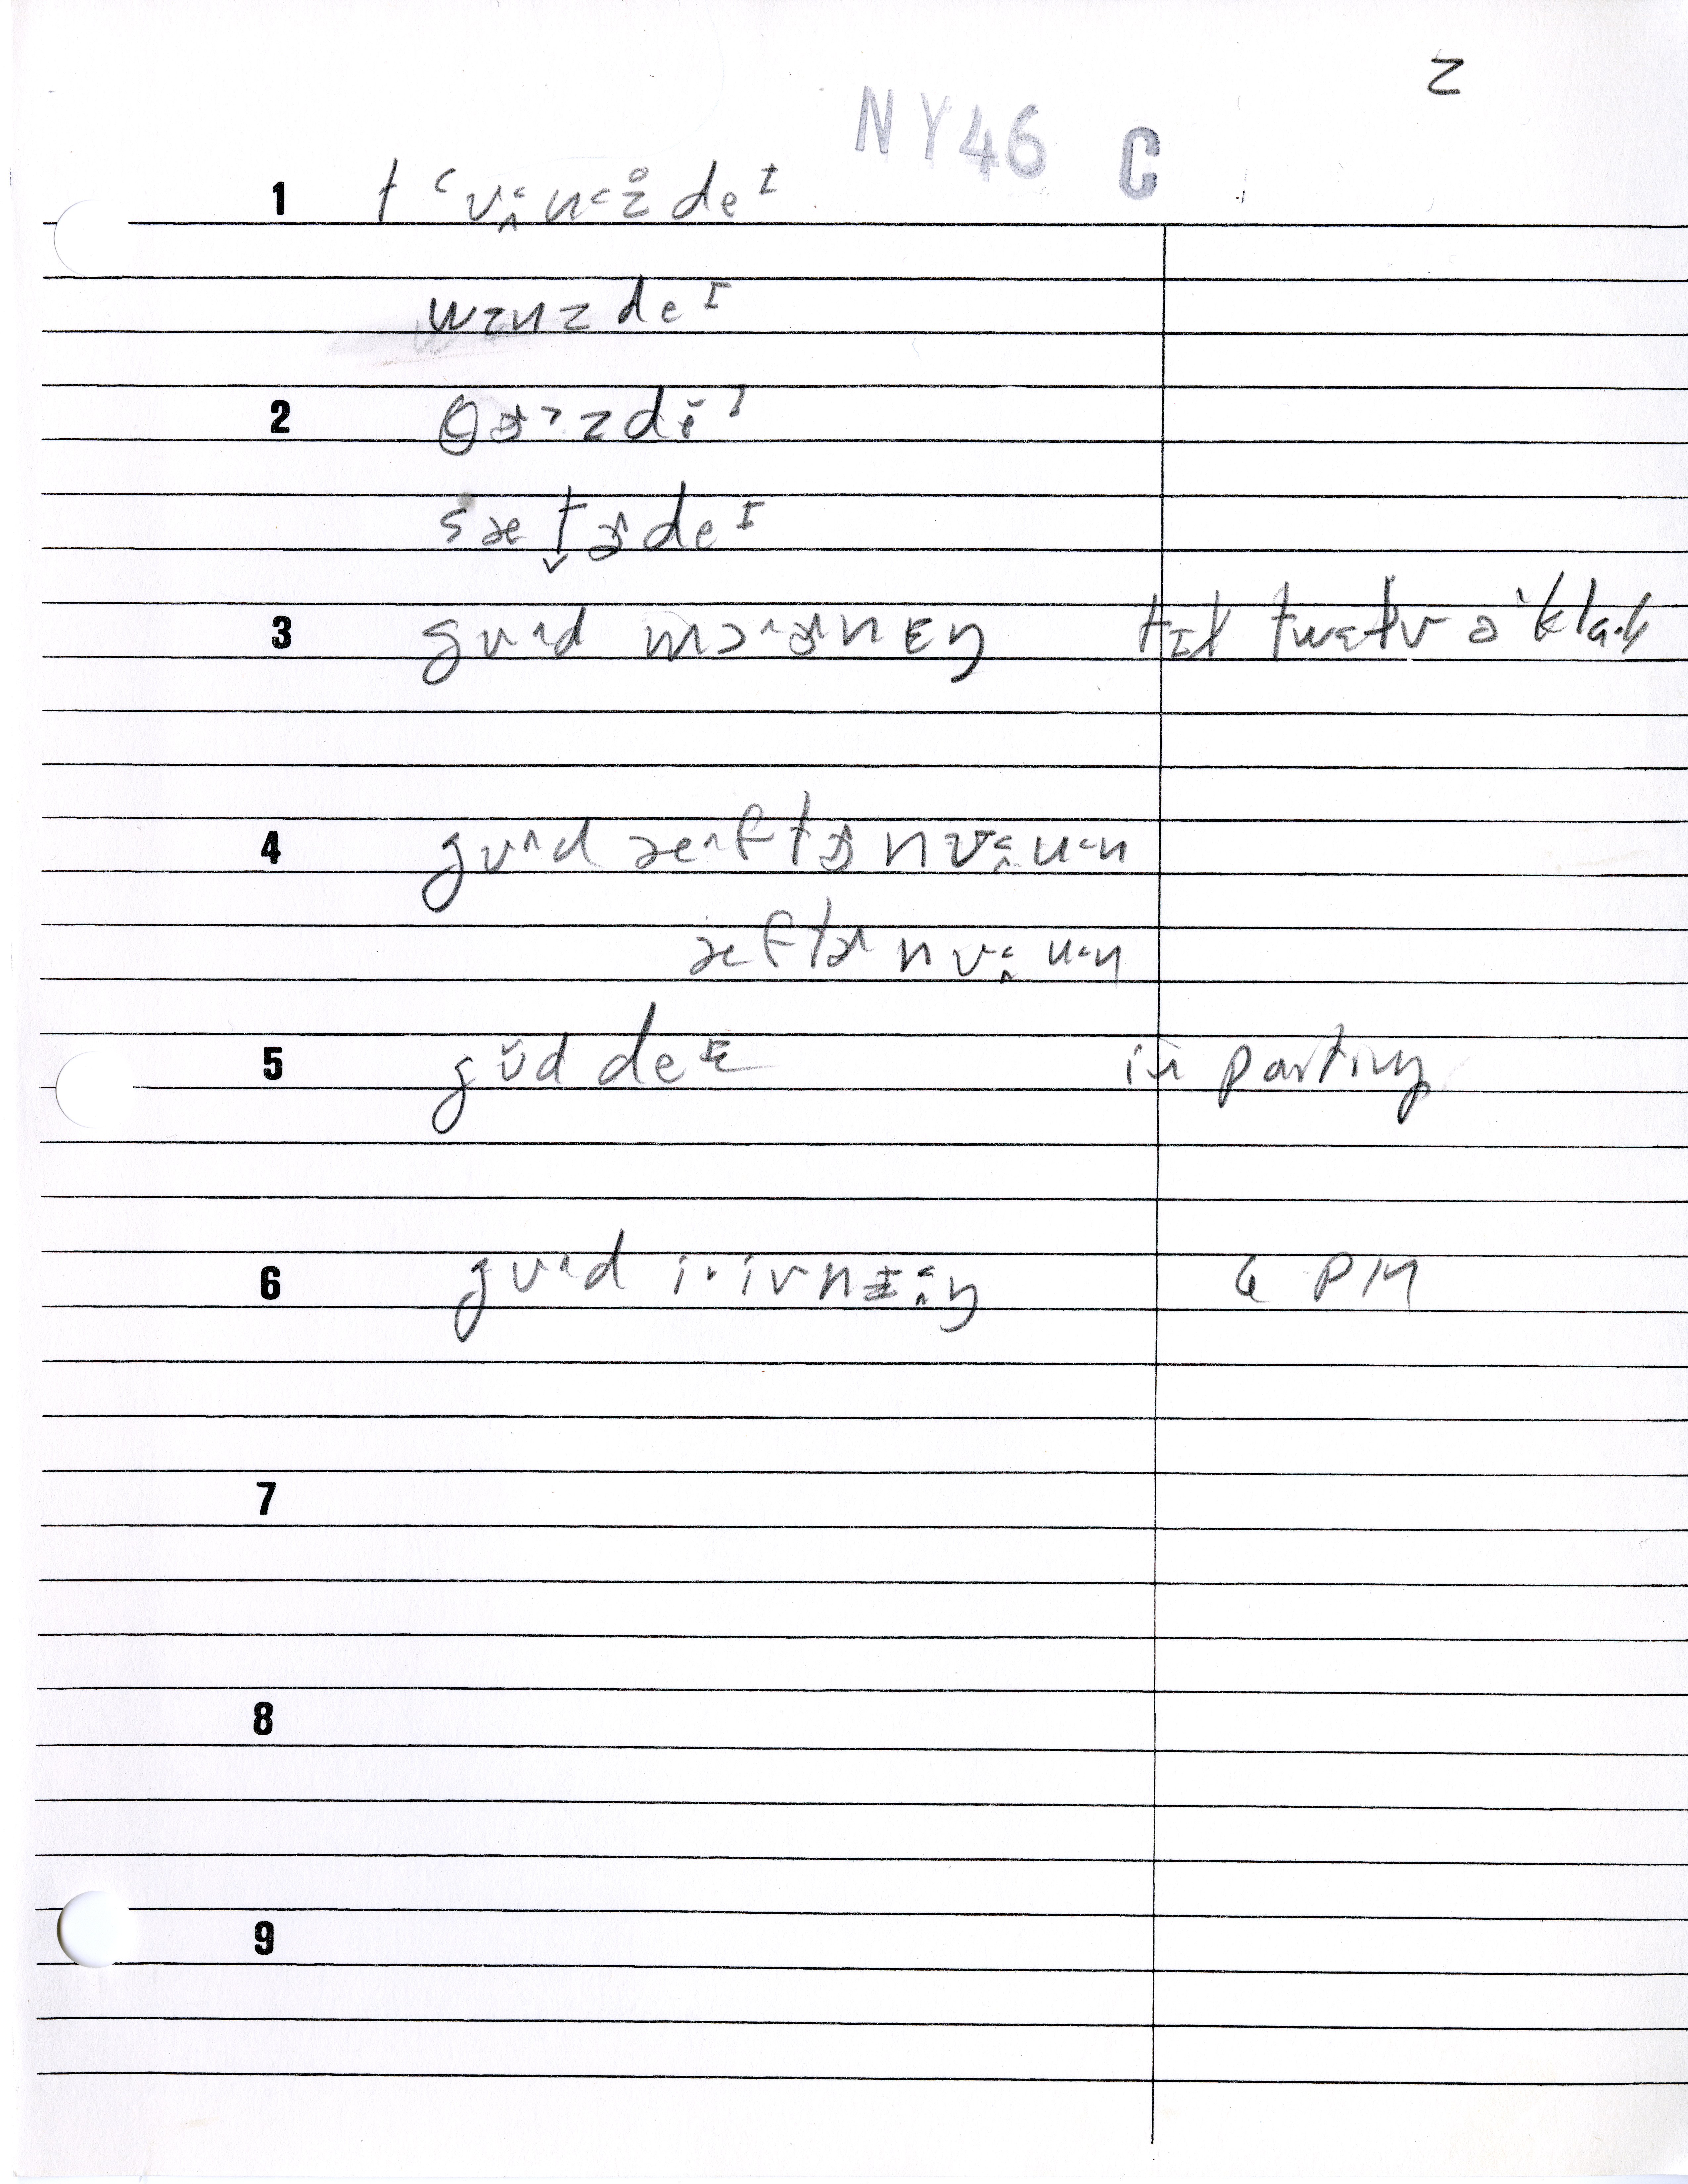 2
NY46 C
1 t˂ʊ˂̭ʉ˂z̥deᴵ
wɪnzdeᴵ
2 θɚ˃zdĕᴵ
sæt̬ɚdeᴵ
3 gʊ^d mɔ^ɚnɪŋ tɪɫ twɛɫv ə'kla·k
4 gʊ^d æ^ftɚnʊ˂̭ʉ˂n
æftɚnʊ˂̭ʉ˂n
5 gʊ̆d deᴵ in parting
6 gʊ^d i·ivnɪ˂̭ŋ 6 PM
7
8
9